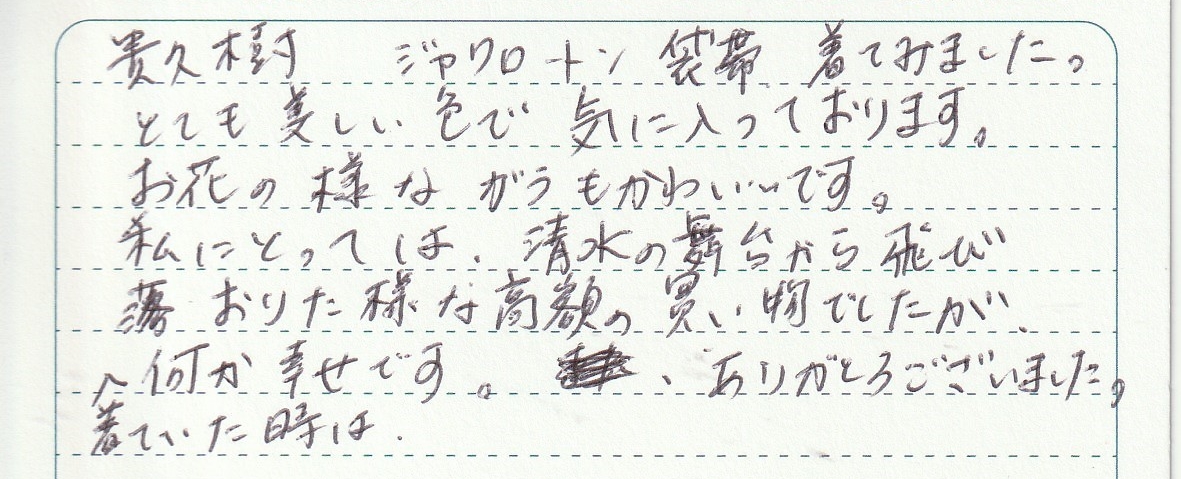 貴久樹 ジャワロートン 袋帯 着てみました。
とても美しい色で 気に入っております。
お花の様な がらもかわいいです。
私にとっては、清水の舞台から飛び
おりた様な高額の買い物でしたが、
何か幸せです。、ありがとうございました。
着ていた時は、